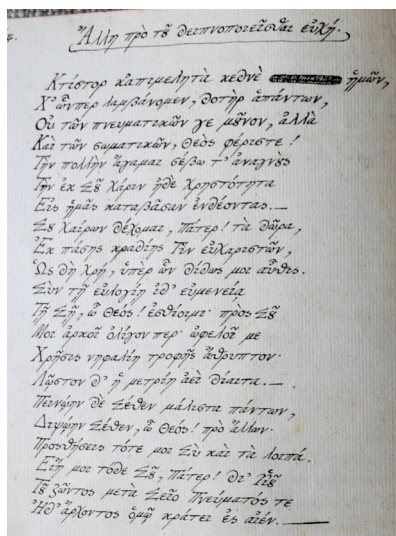 4.
Ἄλλη πρὸ τοῦ δειπνοποιεῖσθαι εὐχή.
Κτίστορ κἀπιμελητὰ κεδνὲ ἡμῶν,
Χ' ὧνπερ λαμβάνομεν, δοτὴρ ἁπάντων,
Οὐ τῶν πνευματικῶν γε μοῦνον, ἀλλὰ
Καὶ τῶν σωματικῶν, Θεὸς φέριστε!
Τὴν πολλὴν ἄγαμαι σέβω τ'
Τὴν ἐκ Σοῦ Χάριν ἠδὲ Χρηστότητα
Εἰς ἡμᾶς καταβᾶσαν ἐνδέοντας.—
Σοῦ Χαίρων δέχομαι, Πάτερ! τὰ δῶρα,
Ἐκ πάσης κραδίης Τὶν εὐχαριστῶν,
Ὡς δὴ Χρή, ὑπὲρ ὧν δίδως μοι αὖθις.
Σὺν τῇ εὐλογίῃ ἰδ' εὐμενείᾳ
Τῇ Σῇ, ὦ Θεός! ἐσθίοιμι· πρὸς Σοῦ
Μοι ἀρκοῖ ὀλίγον περ· ὠφελοῖ με
Χρῆσις νηφαλίη τροφῆς ἄθρυπτον·
Λῷστον δ' ἡ μετρίη ἀεὶ δίαιτα.—
Πεινῴην δὲ Σέθεν μάλιστα πάντων,
Διψῴην Σέθεν, ὦ Θεός! πρὸ ἄλλων·
Προσθήσεις τότε μοι Σὺ καὶ τὰ λοιπά.
Εἴη μοι τόδε Σοῦ, Πάτερ! δι'
Τοῦ ζῶντος μετὰ Σεῖο Πνεύματός τε
Ἠδ' ἄρχοντος ὁμῇ κράτει ἐς αἰέν.—